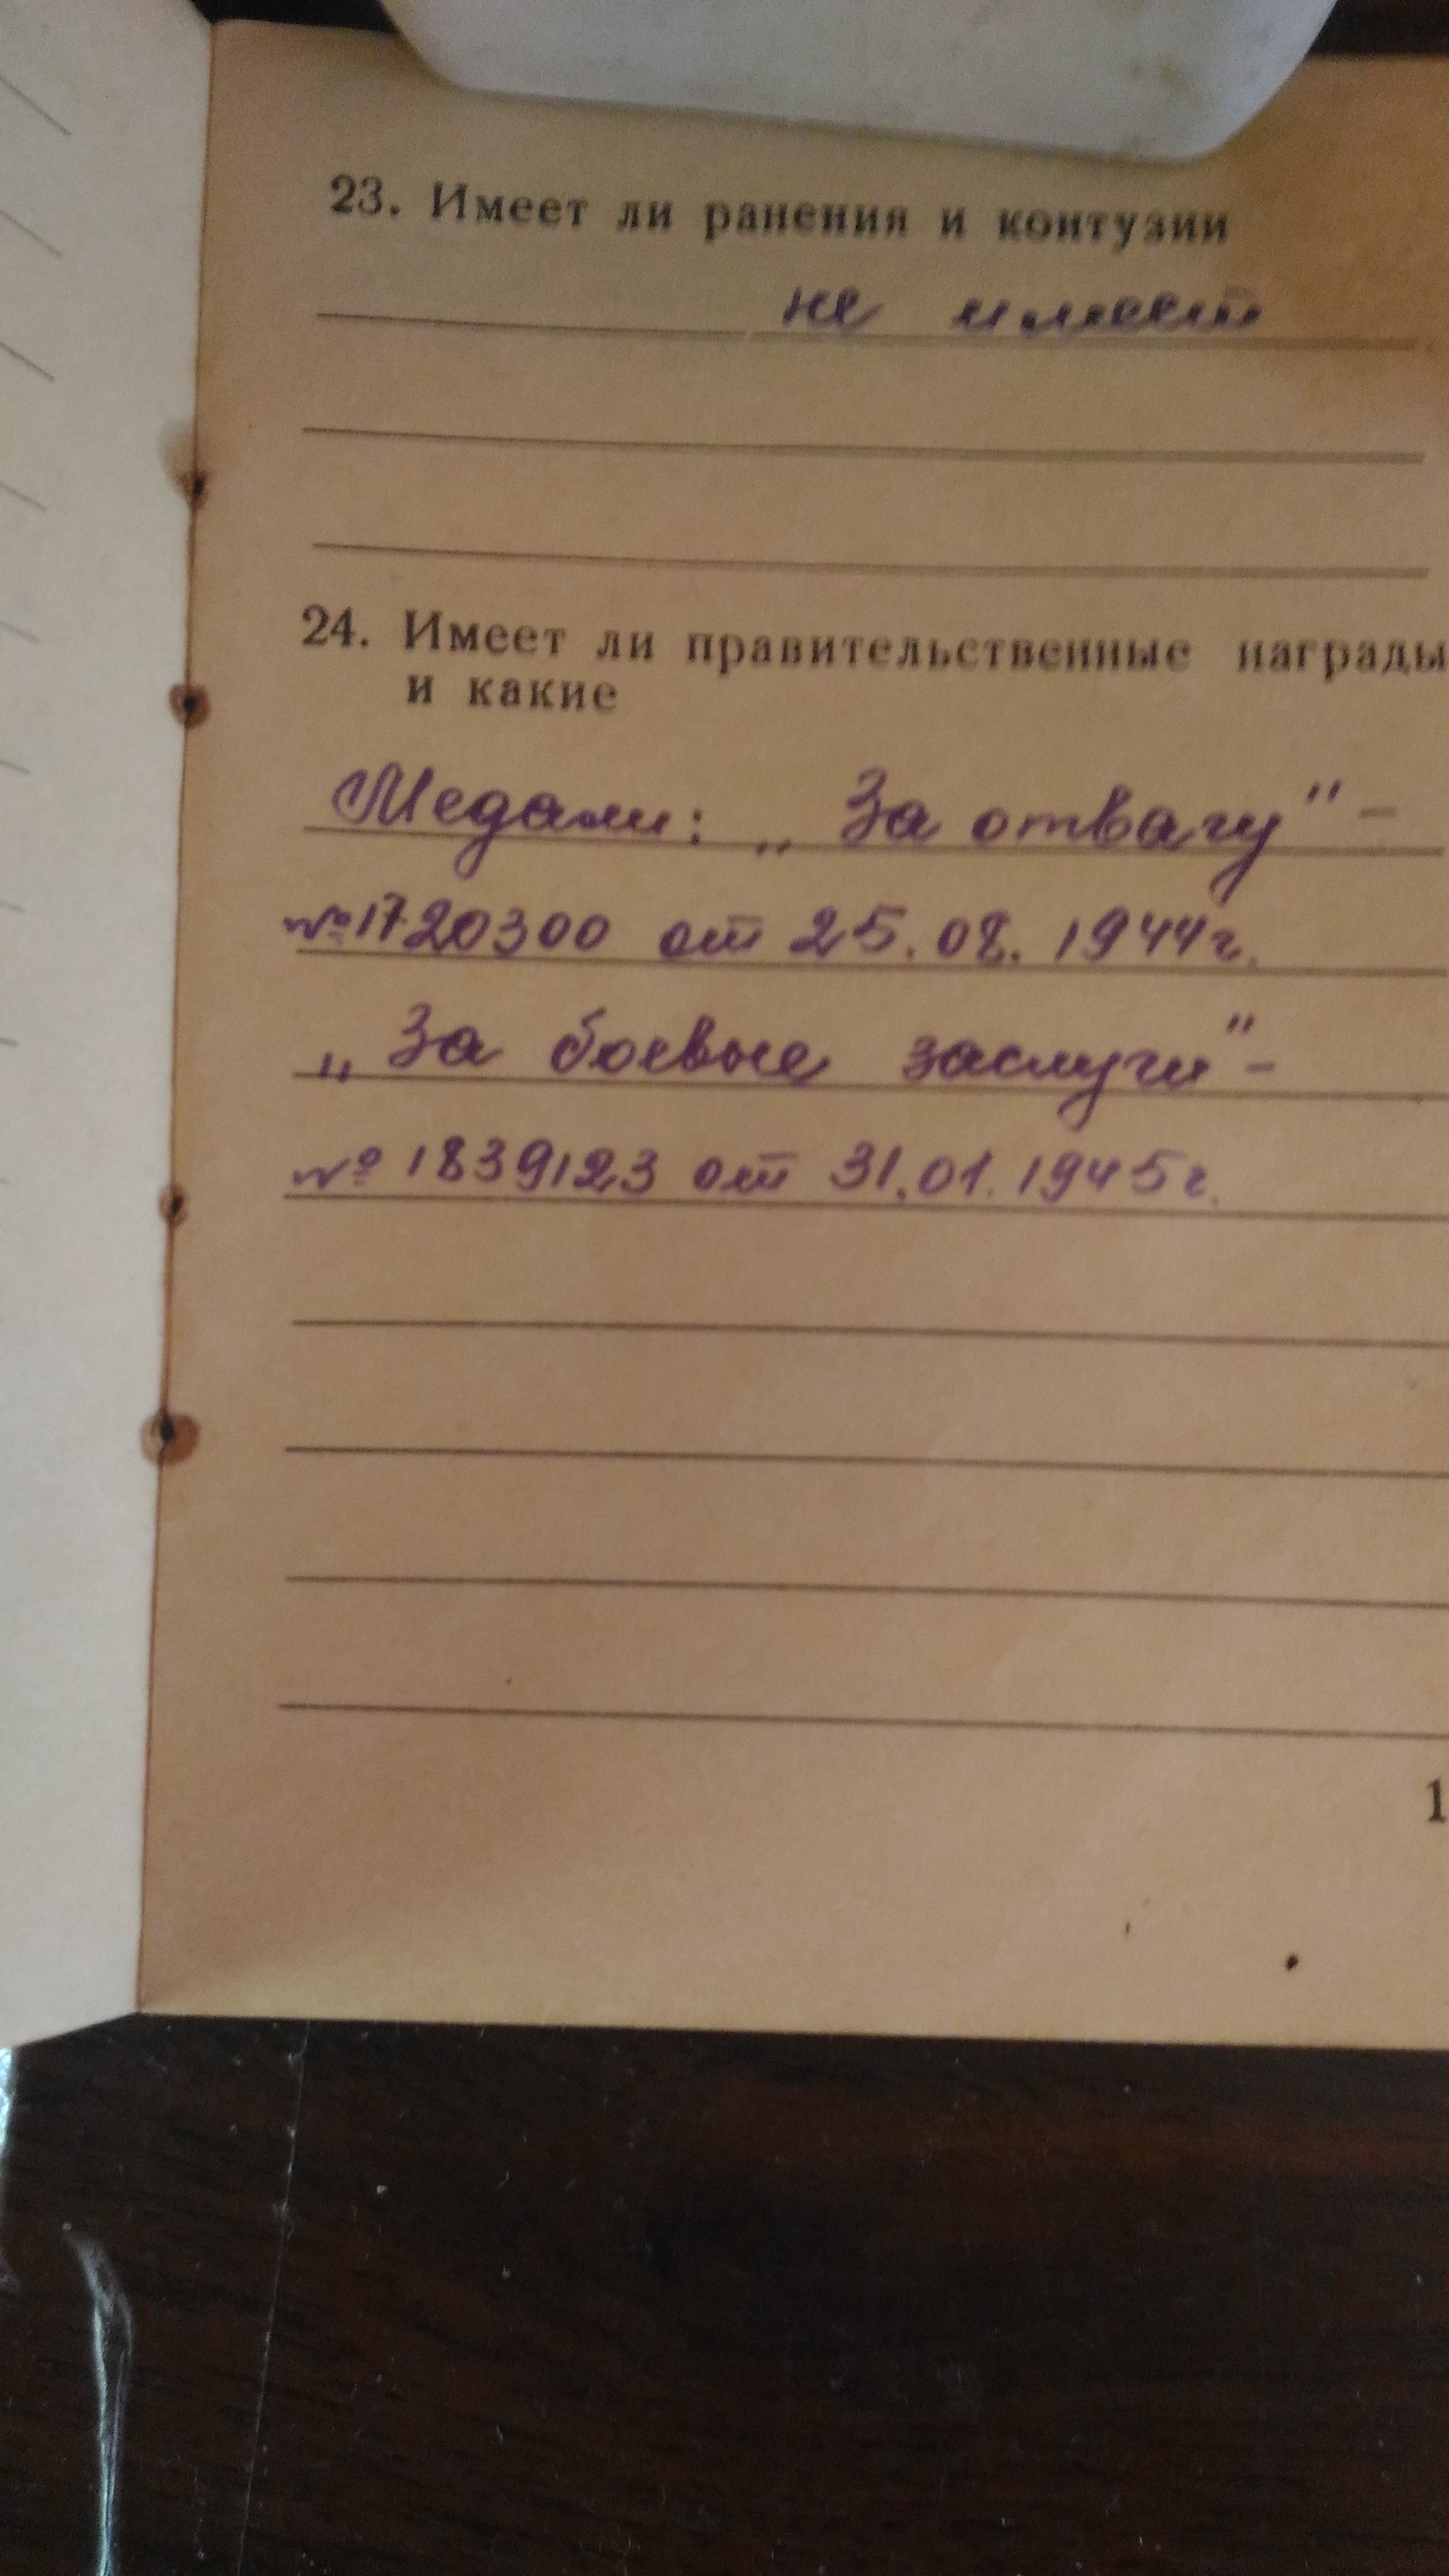 23. Имеет ли ранения и контузии
не имеет
24. Имеет ли правительственные награды
и какие
Медали: „За отвагу" –
№1720300 от 25.08.1944г.
„За боевые заслуги" –
№ 1839123 от 31.01.1945г.
1